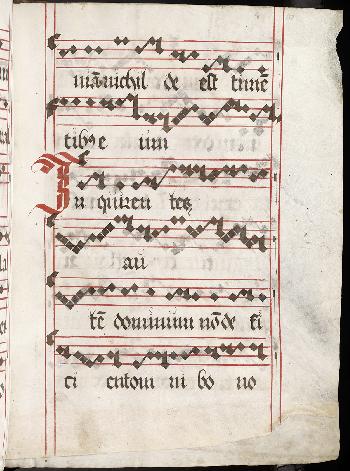 niā nichil de est timē
tibꝰ e um
In quiren tes
au
tē dominum nō de fi
ci entom ni bo no